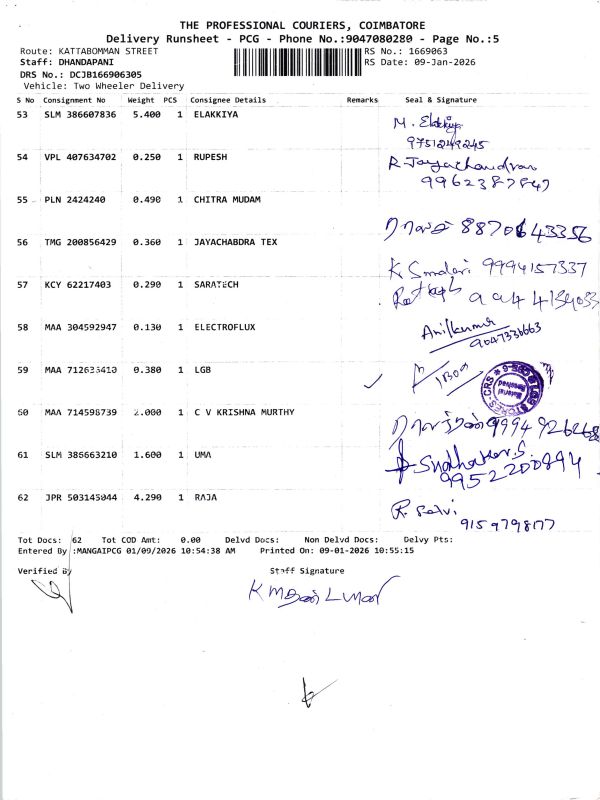 THE PROFESSIONAL COURIERS, COIMBATORE
Delivery Runsheet - PCG - Phone No.:9047080280 - Page No.:5
Route: KATTABOMMAN STREET RS No.: 1669063
Staff: DHANDAPANI RS Date: 09-Jan-2026
DRS No.: DCJB166906305
Vehicle: Two Wheeler Delivery
S No Consignment No Weight PCS Consignee Details Remarks Seal & Signature
53 SLM 386607836 5.400 1 ELAKKIYA M. Elakkiya
9751249245
54 VPL 407634702 0.250 1 RUPESH R. Jayachandran
9962387847
55 PLN 2424240 0.490 1 CHITRA MUDAM
8870643356
56 TMG 200856429 0.360 1 JAYACHABDRA TEX
K. Sundari 9994157337
57 KCY 62217403 0.290 1 SARATECH
58 MAA 304592947 0.130 1 ELECTROFLUX Anilkumar
9047336663
59 MAA 712635410 0.380 1 LGB
60 MAA 714598739 2.000 1 C V KRISHNA MURTHY
61 SLM 386663210 1.600 1 UMA Sudhakar.S.
9952200894
62 JPR 503145044 4.290 1 RAJA R. Selvi
9159798177
Tot Docs: 62 Tot COD Amt: 0.00 Delvd Docs: Non Delvd Docs: Delvy Pts:
Entered By :MANGAIPCG 01/09/2026 10:54:38 AM Printed On: 09-01-2026 10:55:15
Verified By Staff Signature